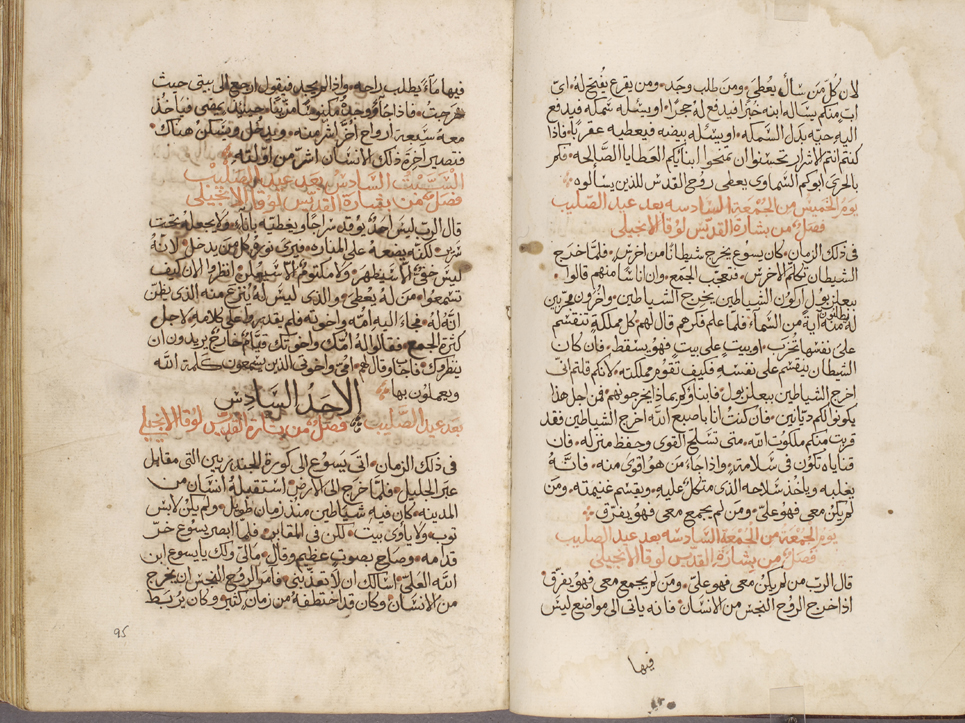 لان كل من سال يعطى ومن طلب وجد ومن يقرع يفتح له اىّ
اب منكم يساله ابنه خبزا فيدفع له حجرًا او يسله سمكه فيدفع
اليه حيّه بدل السمكه او يسله بيضه فيعطيه عقربًا فاذا
كنتم انتم الاشرار تحسنوا ان تمنحوا ابنايكم العطايا الصالحه فكم
بالحرى ابوكم السماوى يعطى روح القدس للذين يسالوه
يوم الخميس من الجمعة السادسه بعد عيد الصليب
فصل من بشارة القديس لوقا الانجيلى
فى ذلك الزمان كان يسوع يخرج شيطانًا من اخرس فلمّا خرج
الشيطان تكلم الاخرس فتعجب الجمع وان اناسًا منهم قالوا
ببعلزبول اركون الشياطين يخرج الشياطين واخرون مجربين
له يطلبون منه اية من السماء فلما علم فكرهم قال لهم كل مملكة تنقسم
على نفسها تخرب وبيت على بيت فهو يسقط فان كان
الشيطان ينقسم على نفسه فكيف تقوم مملكته لانكم قلتم انى
اخرج الشياطين ببعلزبول فابناوكم بماذا يخرجونهم فمن اجل هذا
يكونوا لكم ديانين فان كنت انا باصبع الله اخرج الشياطين فقد
قربت منكم ملكوت الله متى تسلح القوى وحفظ منزله فان
قناياه تكون فى سلامة واذا جاء من هو اقوى منه فانه
يغلبه وياخذ سلاحه الذى متكل عليه ويقسم غنيمته ومن
لم يكن معى فهو علىّ ومن لم يجمع معى فهو يفرّق
يوم الجمعة من الجمعة السادسه بعد عيد الصليب
فصل من بشارة القديس لوقا الانجيلى
قال الرب من لم يكن معى فهو علىّ ومن لم يجمع معى فهو يفرّق
اذا خرج الروح النجس من الانسان فانه ياتى الى مواضع ليس
فيها
فيها ماء يطلب راحه واذا لم يجد فيقول ارجع الى بيتى حيث
خرجت فاذا جاء وجده مكنوسًا مزينًا حينيذ يمضى فياخذ
معه سبعة ارواح اخر اشر منه ويدخل ويسكن هناك
فتصير اخرة ذلك الانسان اشرّ من اولته
السبت السادس بعد عيد الصليب
فصل من بشارة القديس لوقا الانجيلى
قال الرب ليس احد يوقد سراجًا ويغطيه باناء ولا يجعله تحت
سرير لكنه يضعه على المناره فيرى نوره كل من يدخل لانه
ليس خفى الا سيظهر ولا مكتوم الا سيعلن انظروا الان كيف
تسمعوا من له يعطى والذى ليس له ينزع منه الذى يظن
انه له فجاء اليه امه واخوته فلم يقدروا على كلامه لاجل
كثرة الجمع فقالوا له امك واخوتك قيام خارج يريدون ان
ينظروك فاجاب وقال لهم امى واخوتى الذين يسمعون كلمة الله
ويعملون بها
الاحد السادس
بعد عيد الصليب فصل من بشارة القديس لوقا الانجيلى
فى ذلك الزمان اتى يسوع الى كورة الجدريين التى مقابل
عبر الجليل فلمّا خرج الى الارض استقبله انسان من
المدينه كان فيه شياطين منذ زمان طويل ولم يكن لابس
ثوب ولا ياوى بيت لكن فى المقابر فلما ابصر يسوع خرّ
قدامه وصاح بصوت عظيم وقال مالى ولك يا يسوع ابن
الله العلىّ اسالك ان لا تعذبنى فامر الروح النجس ان يخرج
من الانسان وكان قد اختطفه من زمان كثير وكان يربط
95